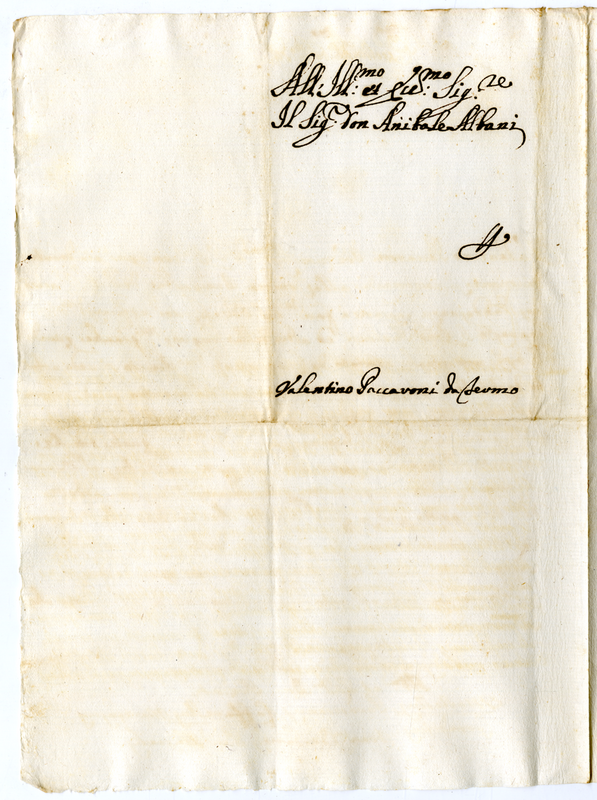 All: Ill:mo et Ecc:mo Sig:re
Il Sig:r Don Anibale Albani
Valentino Paccaroni da Fermo